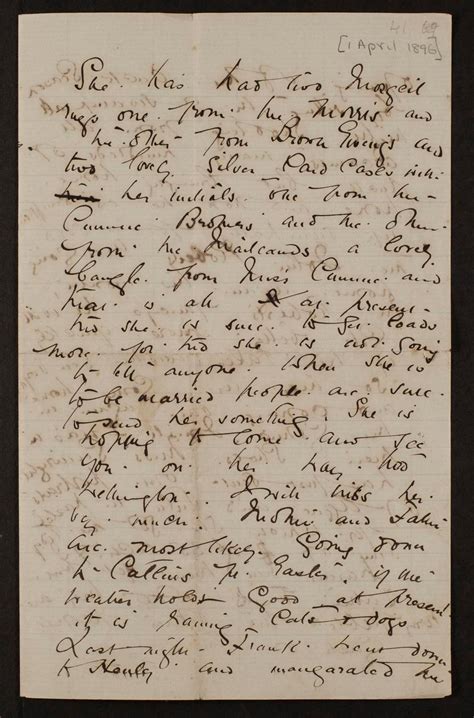 [1 April 1896]
She has had two Mosgeil
rugs one from the Morris' and
the other from Brown Ewings and
two lovely Silver Card Cases with
her initials one from her
Brothers and the other
from the Maitlands a lovely
bangle from Miss and
that is all at present
tho she is sure to get loads
more for tho she is not going
to tell anyone when she is
to be married people are sure
to send her something. She is
hopping to come and see
you on her way
Wellington. I will miss her
very much. and Father
are most likely Going down
to Catlins for Easter if the
weather holds Good at present
it is raining Cats & dogs
Last night Frank went down
to Henley and the